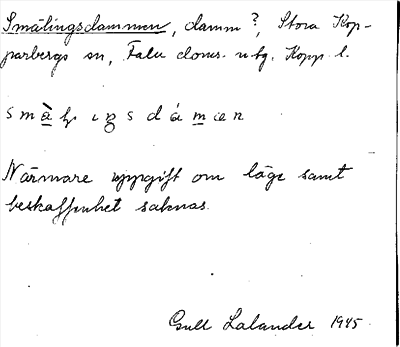 Smålingsdammen, damm?, Stora Kop-
parbergs sn, Falu doms. Kopp. l.
Närmare uppgift om läge samt
beskaffenhet saknas.
Gull Lalander 1945.